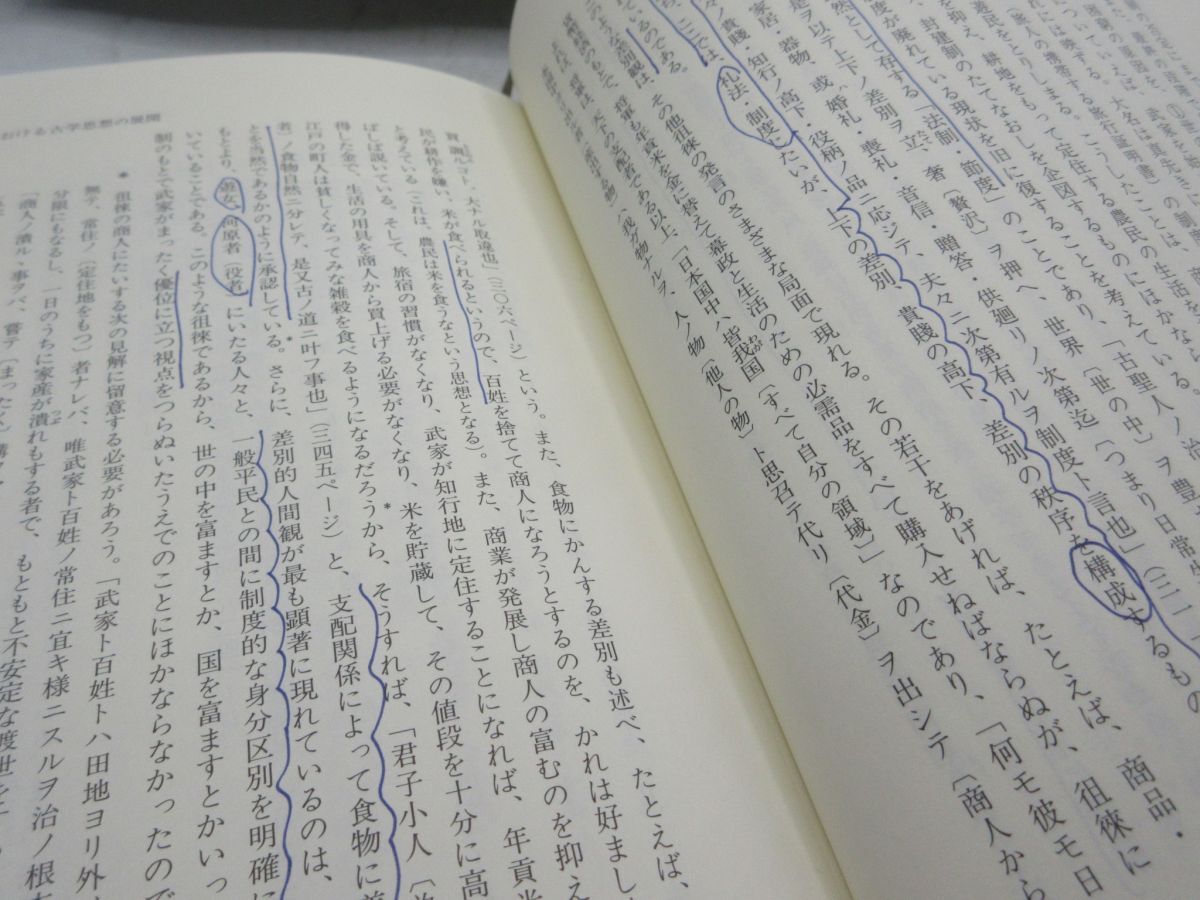 武家を真先に
大名は参
旅人の携帯する旅行証明書）
をとりしまる。こうしたことは、
れには映する。
遊民を抑え、耕地をもって定住する農民の生活にほかなら
封建制のたてなおしを企図するものと考えている
度が廃れている現状を旧に復することであり、「古聖人ノ治
然として存する「法制・節度」のことであり、
是ヲ以テ上下ノ差別ヲ立、奢〔贅沢〕ヲ押へ、世界〔世の中〕ヲ豊
家居・器物、或ハ婚礼・喪礼・音信・贈答・供廻リノ次第迄〔つまり日常生
々ノ貴賤・知行ノ高下・役柄ノ品ニ応シテ、夫々ニ次第有ルヲ制度ト言也」（三一一
ら、ここでは、礼法・制度しだいが、上下の差別、貴賤の高下、差別の秩序を構成するもの
るのである。
このような差別観は、その他徂徠の発言のさまざまな局面で現れる。その若干をあげれば、たとえば、商品・
のもとで、将軍も年貢米を金に替えて幕政と生活のための必需品をすべて購入せねばならぬが、徂徠に
、将軍は天下の支配者である以上、「日本国中ハ皆我国〔すべて自分の領域〕」なのであり、「何モ彼モ日
る物」「我ガ物ナルヲ、人ノ物〔他人の物〕ト思召テ代リ〔代金〕ヲ出シテ〔商人から
おける古学思想の展開
買調ルコト、大ナル取違也」（三〇六ページ）という。また、食物にかんする差別も述べ、たとえば、
民が耕作を嫌い、米が食べられるというので、百姓を捨てて商人になろうとするのを、かれは好まし
と考えている（これは、農民は米を食うなという思想となる）。また、商業が発展し商人の富むのを抑え
ばしば説いている。そして、旅宿の習慣がなくなり、武家が知行地に定住することになれば、年貢米
得した金で、生活の用具を商人から買上げる必要がなくなり、米を貯蔵して、その値段を十分に高
江戸の町人は貧しくなってみな雑穀を食べるようになるだろうから、そうすれば、「君子小人
者〕ノ食物自然ニ分レテ、是又古ノ道ニ叶フ事也」（三四五ページ）と、支配関係によって食物に差
とを当然であるかのように承認している。さらに、差別的人間観が最も顕著に現れているのは、
もとより、遊女、河原者〔役者〕にいたる人々と、一般平民との間に制度的な身分区別を明確に
いていることである。このような徂徠であるから、世の中を富ますとか、国を富ますとかいっ
制のもとで武家がまったく優位に立つ視点をつらぬいたうえでのことにほかならなかったので
＊　徂徠の商人にたいする次の見解に留意する必要があろう。「武家ト百姓トハ田地ヨリ外
無テ、常住ノ〔定住地をもつ〕者ナレバ、唯武家ト百姓ノ常住ニ宜キ様ニスルヲ治ノ根本
分限にもなるし、一日のうちに家産が潰れもする者で、もともと不安定な渡世を
「商人ノ潰ル丶事ヲバ、嘗テ〔まったく〕構フ